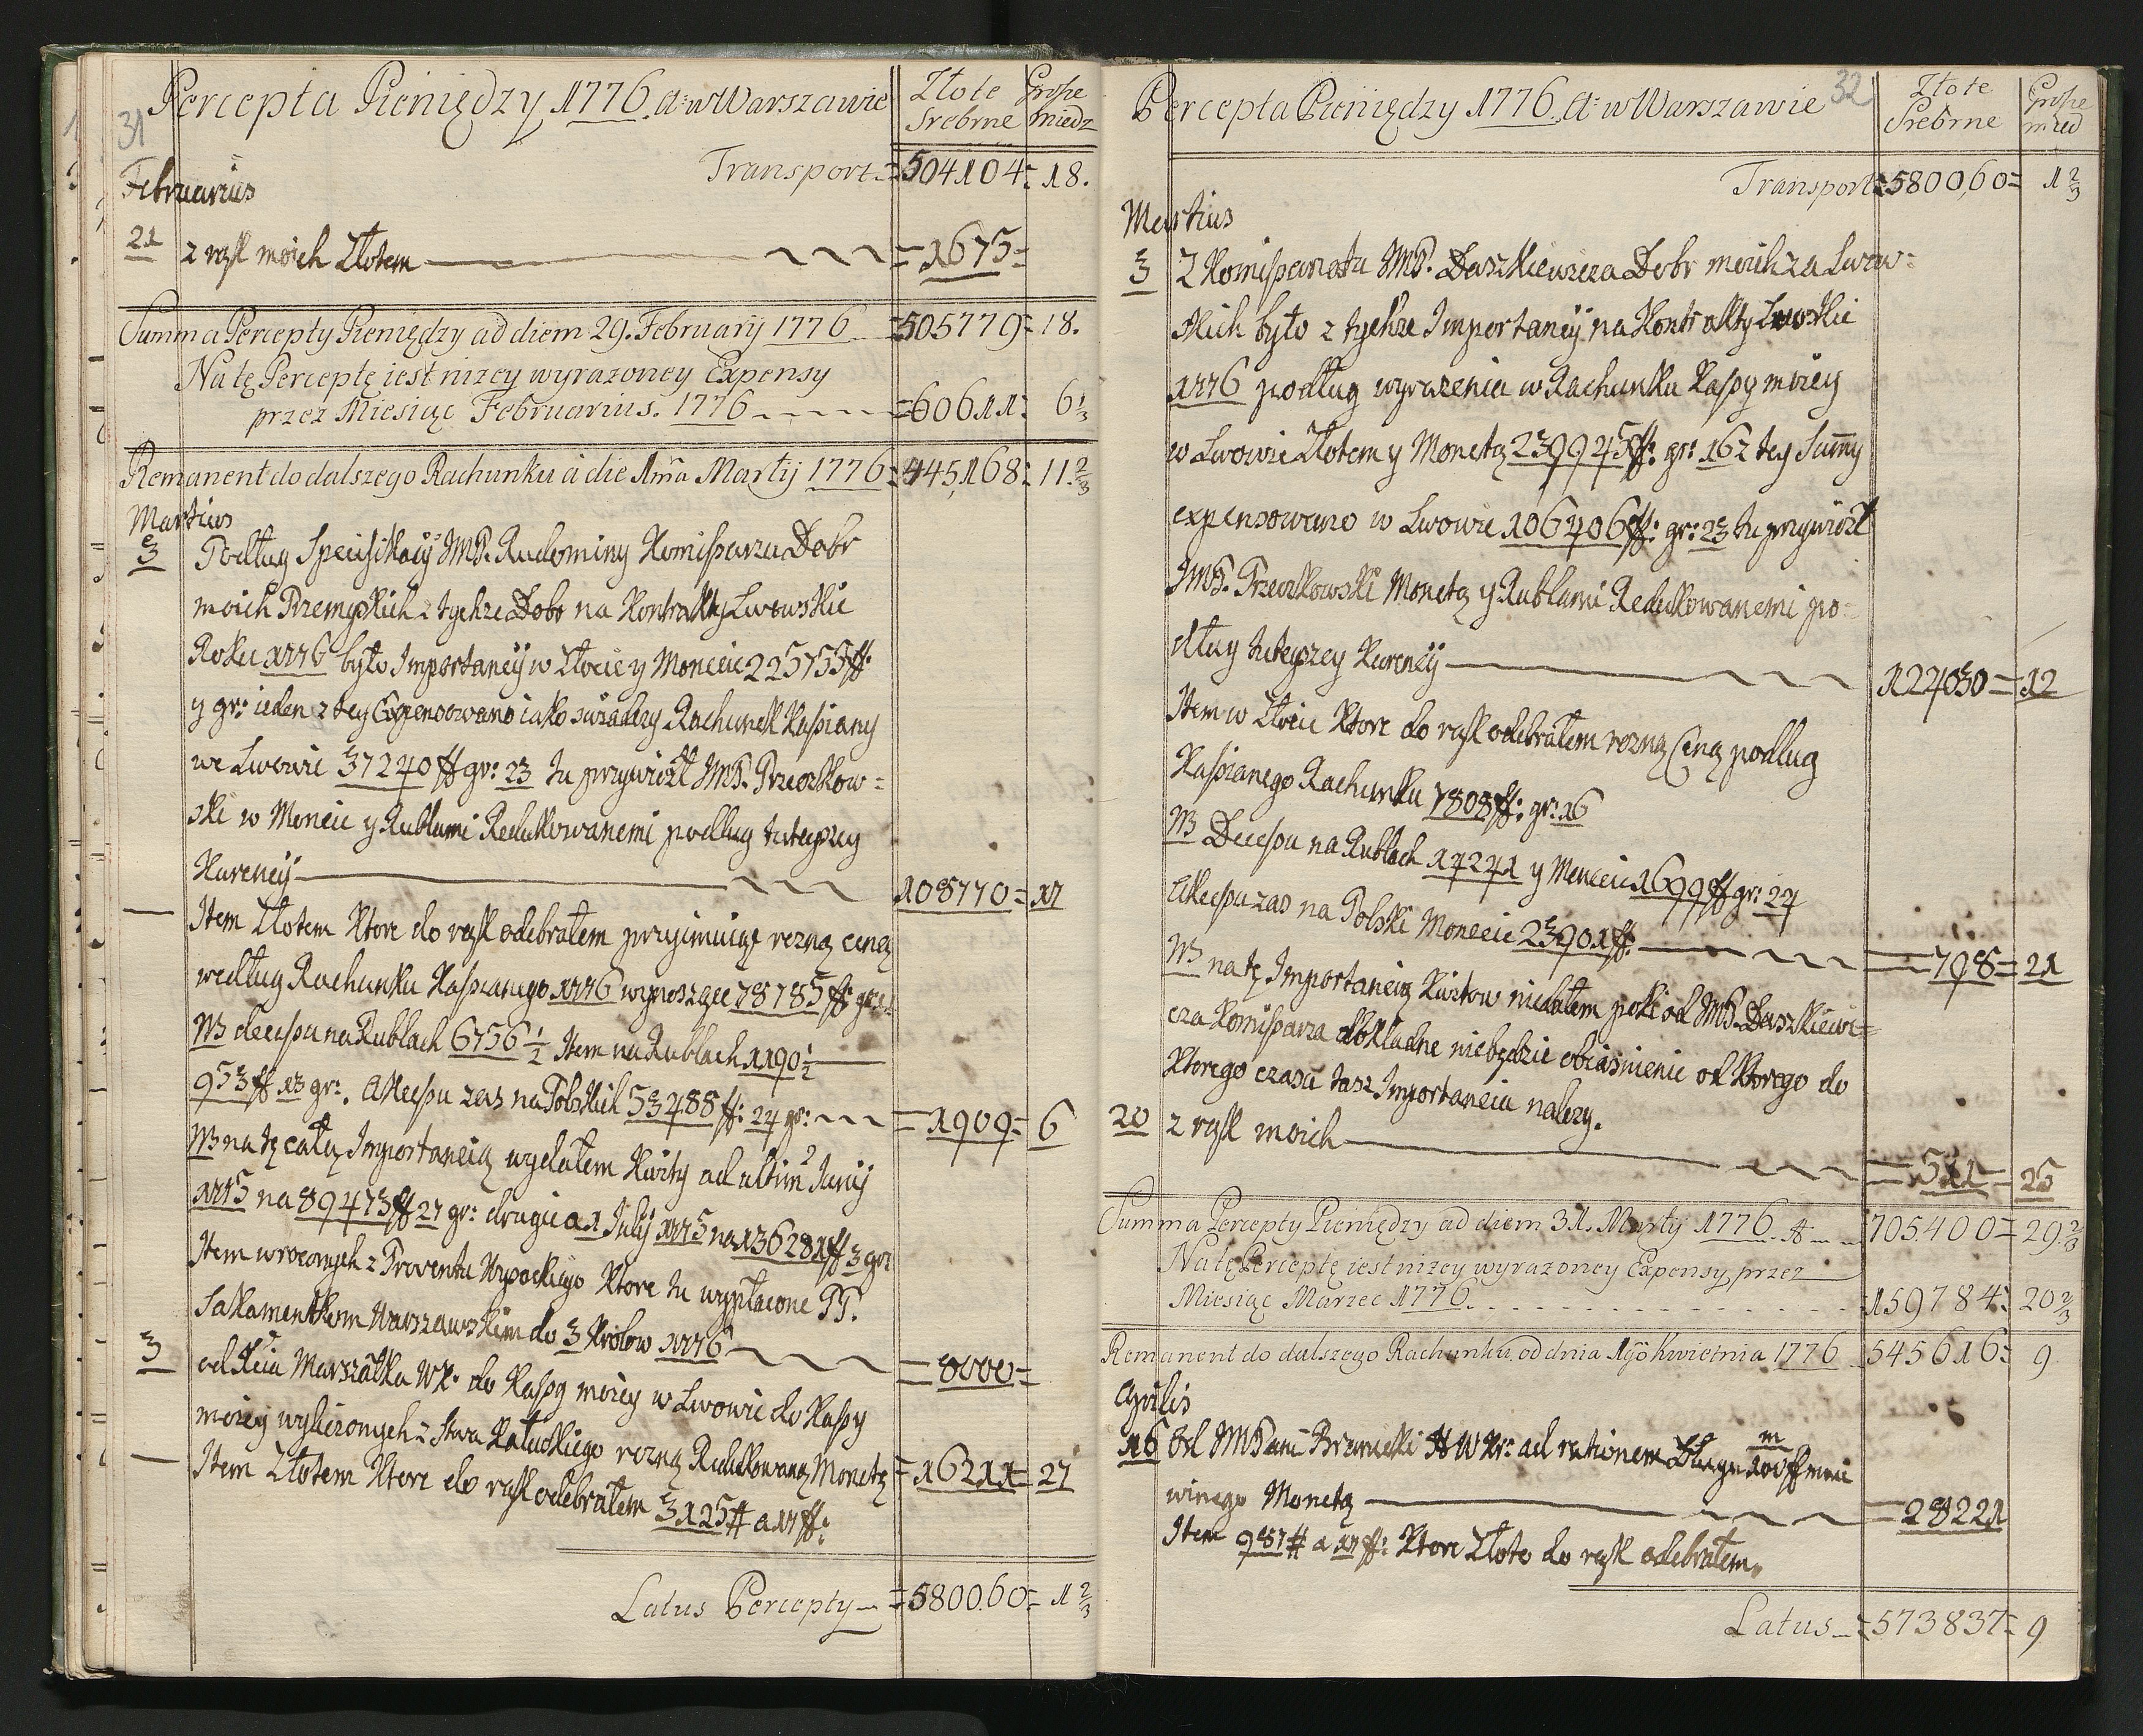 31
Percepta Pieniędzy 1776. A: w Warszawie
Złote Srebrne
Grosze miedz
Transport = 504104 = 18.
Februarius
21 z rąk moich Złotem = 1675 =
Summa Percepty Pieniędzy ad diem 29. Februarij 1776 = 505779 = 18.
Na tę Perceptę iest nizey wyrazoney Expensy
przez Miesiąc Februarius. 1776 = 60611 = 6 1/3
Remanent do dalszego Rachunku à die 1ma Martij 1776 = 445,168 = 11 2/3
Martius
3 Podług Specifikacij JMP. Rudominy Komissarza Dobr
moich Przemyskich z tychze Dobr na Kontrakty Lwowskie
Roku 1776 było Importancij w Złocie y Monecie 225755 ff
y gr: ieden z tey Expensowano iako swiadczy Rachunek Kassiany
we Lwowie 37240 ff gr: 23 tu przywiozł JMP. Przeczkow=
ski w Monecie y Rublami Redukowanemi podług tuteyszey
Kurencij 108770 = 17
Item Złotem Ktore do rąk odebrałem przyimuiąc rozną ceną
według Rachunku Kassianego 1776 wynoszące 78785 ff gr:
NB decessu na Rublach 6756 1/2 Item na Rublach 1190 1/2
953 ff 13 gr:. Akcessu zas na Polskich 53488 ff: 24 gr: = 1909 = 6
NB na tę całą Importancią wydałem Kwity ad ultim Junij
1775 na 89473 ff 27 gr: drugie a 1 Julij 1775 na 136281 ff 3 gr:
Item wroconych z Proventu Wysockiego Ktore tu wypłacone PP.
Sakamentkom Warszawskim do 3 Krolow 1776 = 8000 =
3 od Xcia Marszałka WK: do Kassy moiey w Lwowie do Kassy
moiey wyliczonych z Stwa Kałuskiego rozną Redukowaną Monetą = 16211 = 27
Item Złotem Ktore do rąk odebrałem 3125 # a 17 ff:
Latus Percepty = 5800.60 = 1 2/3
32
Percepta Pieniędzy 1776. A: w Warszawie
Złote Srebrne
Grosze mied
Transport = 5800,60 = 1 2/3
Martius
3 Z Komissariatu JMP. Daszkiewicza Dobr moich za Lwow=
skich było z tychze Importancij na Kontrakty Lwoskie
1776 podług wyrazenia w Rachunku Kassy moiey
w Lwowie Złotem y Monetą 239945 ff: gr: 16 z tey Summy
expensowano w Lwowie 106406 ff: gr: 23 tu przywiozł
JMP. Przeczkowski Monetą y Rublami Redukowanemi po=
dług tuteyszey Kurencij 124030 = 12
Item w Złocie Ktore do rąk odebrałem rozną Ceną podług
Kassianego Rachunku 7808 ff: gr: 16
NB Decessu na Rublach 14271 y Monecie 1699 ff gr: 24
Akcessu zas na Polski Monecie 23901 ff: = 798 = 21
NB na tę Importancią Kwitow niedałem poki od JMP. Daszkiewi=
cza Komissarza dokładne niebędzie obiasnienie od Ktorego do
Ktorego czasu tasz Importancia nalezy.
20 z rąk moich = 511 = 25
Summa Percepty Pieniędzy ad diem 31. Martij 1776. A 705.400 = 29. 2/3
Na tę Perceptę iest nizey wyrazoney Expensy przez
Miesiąc Marzec 1776 159784 = 20 2/3
Remanent do dalszego Rachunku od dnia 1go Kwietnia 1776 545616 = 9
Aprilis
16 Od JMPani Branicki H W Kr: ad rationem Długu 100 m ff moie
winego Monetą = 28221
Item 987 # a 17 ff: Ktore Złoto do rąk odebrałem.
Latus = 573837 = 9